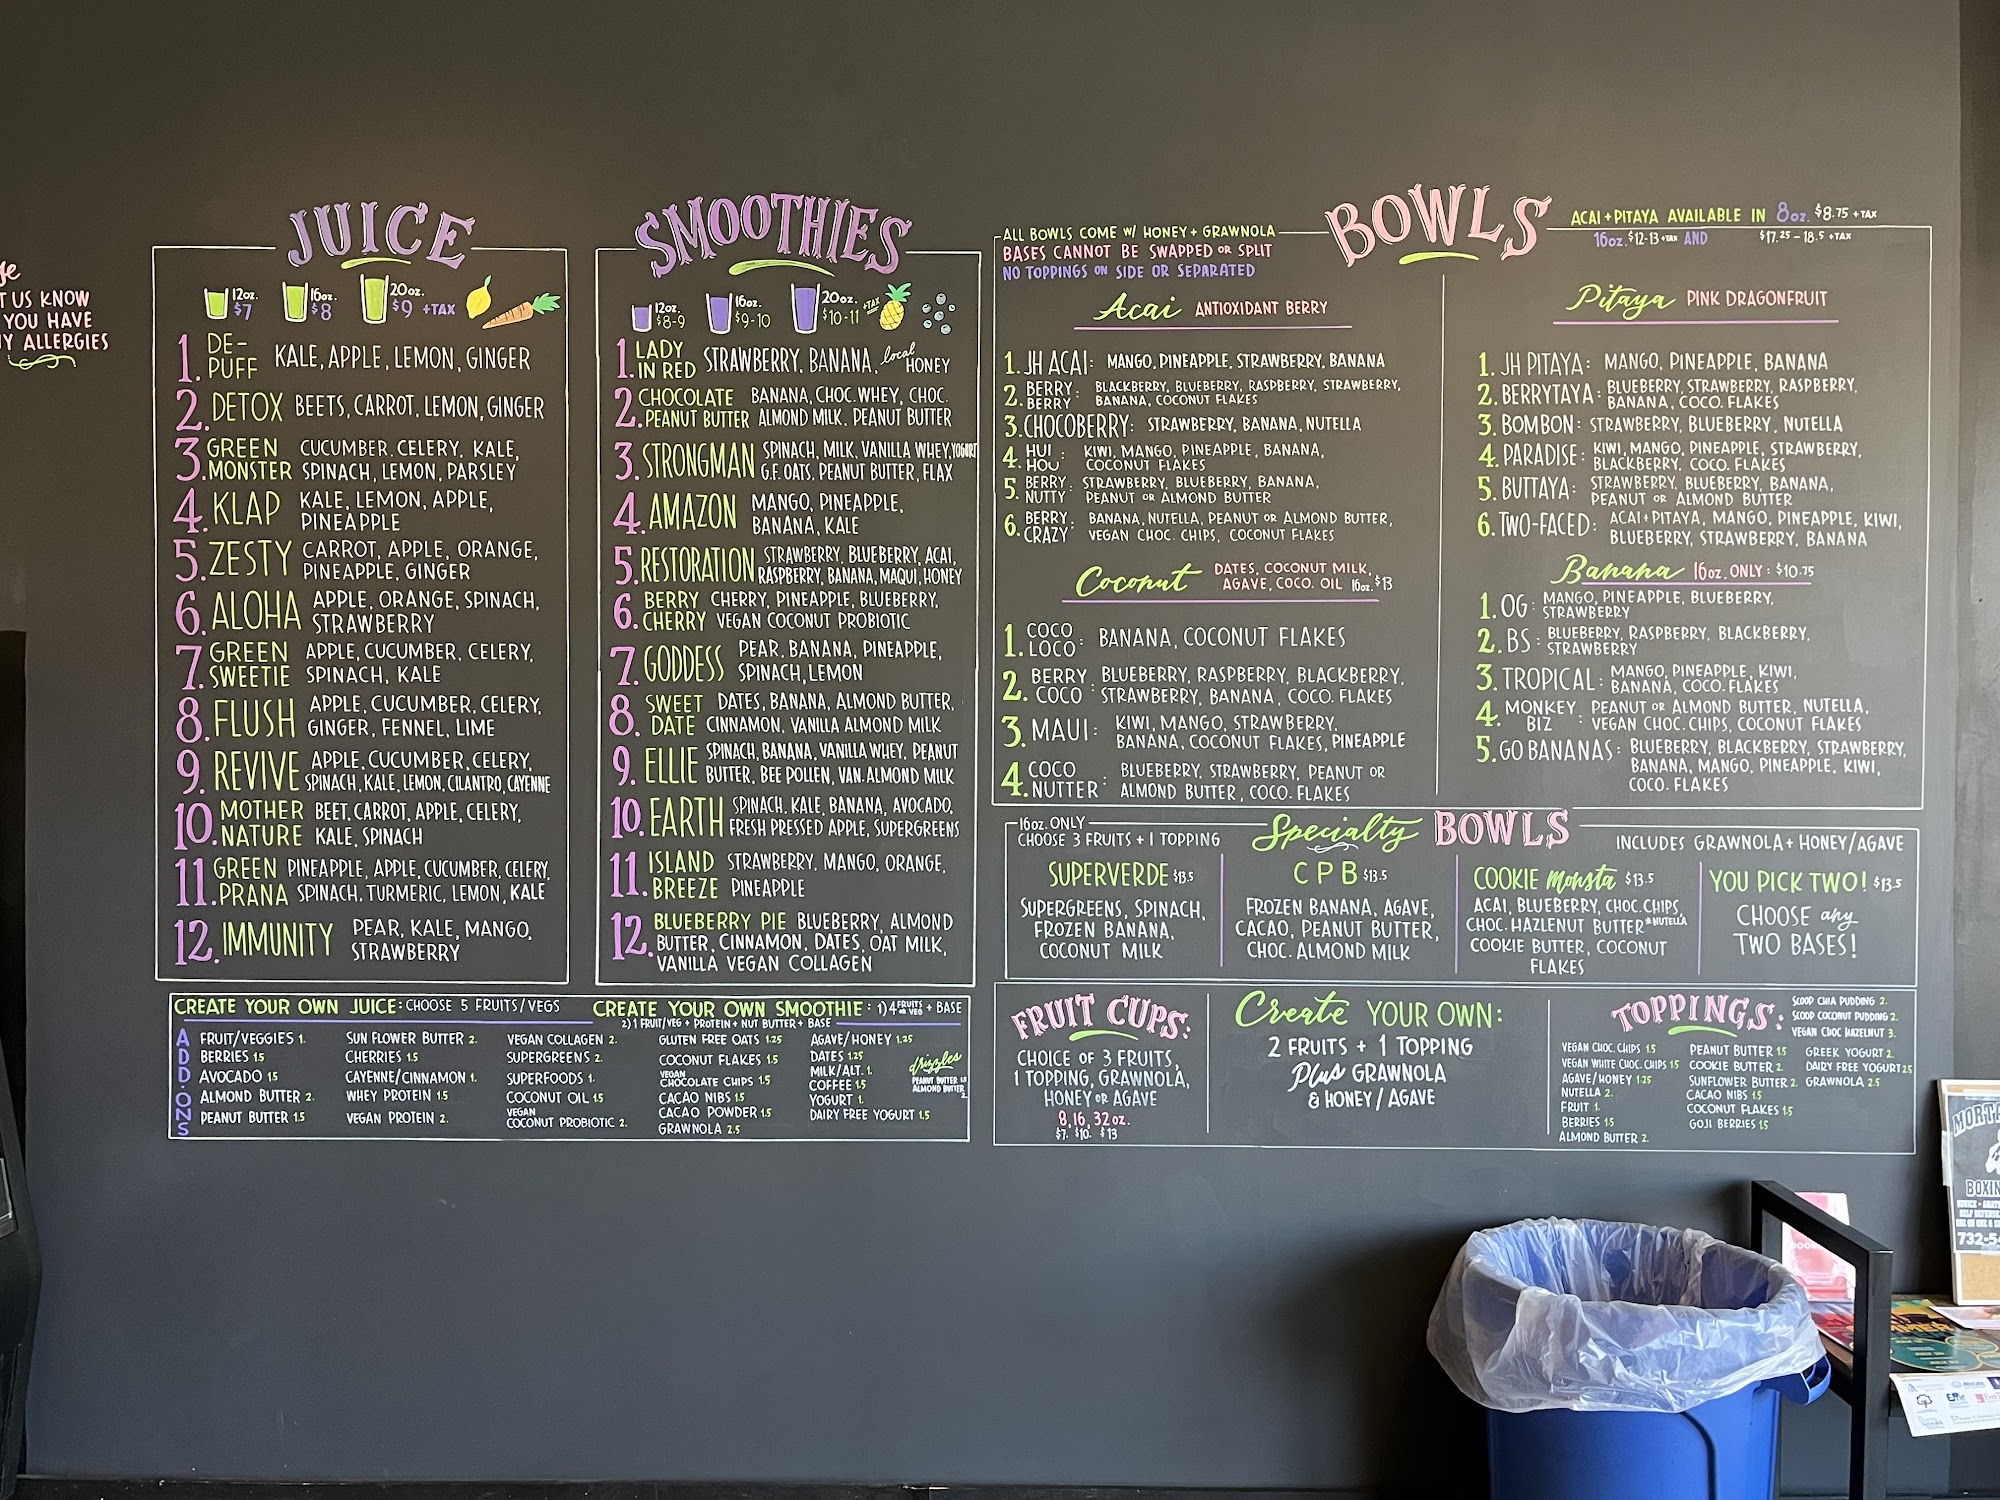 T US KNOW
YOU HAVE
Y ALLERGIES
JUICE
12oz. $7
16oz. $8
20oz. $9 +TAX
1. DE-PUFF KALE, APPLE, LEMON, GINGER
2. DETOX BEETS, CARROT, LEMON, GINGER
3. GREEN MONSTER CUCUMBER, CELERY, KALE,
SPINACH, LEMON, PARSLEY
4. KLAP KALE, LEMON, APPLE,
PINEAPPLE
5. ZESTY CARROT, APPLE, ORANGE,
PINEAPPLE, GINGER
6. ALOHA APPLE, ORANGE, SPINACH,
STRAWBERRY
7. GREEN SWEETIE APPLE, CUCUMBER, CELERY,
SPINACH, KALE
8. FLUSH APPLE, CUCUMBER, CELERY,
GINGER, FENNEL, LIME
9. REVIVE APPLE, CUCUMBER, CELERY,
SPINACH, KALE, LEMON, CILANTRO, CAYENNE
10. MOTHER NATURE BEET, CARROT, APPLE, CELERY,
KALE, SPINACH
11. GREEN PRANA PINEAPPLE, APPLE, CUCUMBER, CELERY,
SPINACH, TURMERIC, LEMON, KALE
12. IMMUNITY PEAR, KALE, MANGO,
STRAWBERRY
SMOOTHIES
12oz. $8-9
16oz. $9-10
20oz. $10-11 +TAX
1. LADY IN RED STRAWBERRY, BANANA, local HONEY
2. CHOCOLATE PEANUT BUTTER BANANA, CHOC. WHEY, CHOC.
ALMOND MILK, PEANUT BUTTER
3. STRONGMAN SPINACH, MILK, VANILLA WHEY, YOGURT
G.F. OATS, PEANUT BUTTER, FLAX
4. AMAZON MANGO, PINEAPPLE,
BANANA, KALE
5. RESTORATION STRAWBERRY, BLUEBERRY, ACAI,
RASPBERRY, BANANA, MAQUI, HONEY
6. BERRY CHERRY CHERRY, PINEAPPLE, BLUEBERRY,
VEGAN COCONUT PROBIOTIC
7. GODDESS PEAR, BANANA, PINEAPPLE,
SPINACH, LEMON
8. SWEET DATE DATES, BANANA, ALMOND BUTTER,
CINNAMON, VANILLA ALMOND MILK
9. ELLIE SPINACH, BANANA, VANILLA WHEY, PEANUT
BUTTER, BEE POLLEN, VAN. ALMOND MILK
10. EARTH SPINACH, KALE, BANANA, AVOCADO,
FRESH PRESSED APPLE, SUPERGREENS
11. ISLAND BREEZE STRAWBERRY, MANGO, ORANGE,
PINEAPPLE
12. BLUEBERRY PIE BLUEBERRY, ALMOND
BUTTER, CINNAMON, DATES, OAT MILK,
VANILLA VEGAN COLLAGEN
CREATE YOUR OWN JUICE: CHOOSE 5 FRUITS/VEGS
CREATE YOUR OWN SMOOTHIE: 1) 4 FRUITS OR VEG + BASE
2) 1 FRUIT/VEG + PROTEIN + NUT BUTTER + BASE
ADD-ONS
FRUIT/VEGGIES 1.
BERRIES 1.5
AVOCADO 1.5
ALMOND BUTTER 2.
PEANUT BUTTER 1.5
SUN FLOWER BUTTER 2.
CHERRIES 1.5
CAYENNE/CINNAMON 1.
WHEY PROTEIN 1.5
VEGAN PROTEIN 2.
VEGAN COLLAGEN 2.
SUPERGREENS 2.
SUPERFOODS 1.
COCONUT OIL 1.5
VEGAN COCONUT PROBIOTIC 2.
GLUTEN FREE OATS 1.25
COCONUT FLAKES 1.5
VEGAN CHOCOLATE CHIPS 1.5
CACAO NIBS 1.5
CACAO POWDER 1.5
GRAWNOLA 2.5
AGAVE/HONEY 1.25
DATES 1.25
MILK/ALT. 1.
COFFEE 1.5
YOGURT 1.
DAIRY FREE YOGURT 1.5
drizzles
PEANUT BUTTER 1.5
ALMOND BUTTER 2.
BOWLS
ALL BOWLS COME W/ HONEY + GRAWNOLA
BASES CANNOT BE SWAPPED OR SPLIT
NO TOPPINGS ON SIDE OR SEPARATED
ACAI + PITAYA AVAILABLE IN 8oz. $8.75 +TAX
16oz. $12-13 +TAX AND $17.25 - 18.5 +TAX
Acai ANTIOXIDANT BERRY
1. JH ACAI: MANGO, PINEAPPLE, STRAWBERRY, BANANA
2. BERRY BERRY: BLACKBERRY, BLUEBERRY, RASPBERRY, STRAWBERRY,
BANANA, COCONUT FLAKES
3. CHOCOBERRY: STRAWBERRY, BANANA, NUTELLA
4. HUI HOU: KIWI, MANGO, PINEAPPLE, BANANA,
COCONUT FLAKES
5. BERRY NUTTY: STRAWBERRY, BLUEBERRY, BANANA,
PEANUT OR ALMOND BUTTER
6. BERRY CRAZY: BANANA, NUTELLA, PEANUT OR ALMOND BUTTER,
VEGAN CHOC. CHIPS, COCONUT FLAKES
Coconut DATES, COCONUT MILK,
AGAVE, COCO. OIL 16oz. $13
1. COCO LOCO: BANANA, COCONUT FLAKES
2. BERRY COCO: BLUEBERRY, RASPBERRY, BLACKBERRY,
STRAWBERRY, BANANA, COCO. FLAKES
3. MAUI: KIWI, MANGO, STRAWBERRY,
BANANA, COCONUT FLAKES, PINEAPPLE
4. COCO NUTTER: BLUEBERRY, STRAWBERRY, PEANUT OR
ALMOND BUTTER, COCO. FLAKES
Pitaya PINK DRAGONFRUIT
1. JH PITAYA: MANGO, PINEAPPLE, BANANA
2. BERRYTAYA: BLUEBERRY, STRAWBERRY, RASPBERRY,
BANANA, COCO. FLAKES
3. BOMBON: STRAWBERRY, BLUEBERRY, NUTELLA
4. PARADISE: KIWI, MANGO, PINEAPPLE, STRAWBERRY,
BLACKBERRY, COCO. FLAKES
5. BUTTAYA: STRAWBERRY, BLUEBERRY, BANANA,
PEANUT OR ALMOND BUTTER
6. TWO-FACED: ACAI + PITAYA, MANGO, PINEAPPLE, KIWI,
BLUEBERRY, STRAWBERRY, BANANA
Banana 16oz. ONLY: $10.75
1. OG: MANGO, PINEAPPLE, BLUEBERRY,
STRAWBERRY
2. BS: BLUEBERRY, RASPBERRY, BLACKBERRY,
STRAWBERRY
3. TROPICAL: MANGO, PINEAPPLE, KIWI,
BANANA, COCO. FLAKES
4. MONKEY BIZ: PEANUT OR ALMOND BUTTER, NUTELLA,
VEGAN CHOC. CHIPS, COCONUT FLAKES
5. GO BANANAS: BLUEBERRY, BLACKBERRY, STRAWBERRY,
BANANA, MANGO, PINEAPPLE, KIWI,
COCO. FLAKES
16oz. ONLY
CHOOSE 3 FRUITS + 1 TOPPING
Specialty BOWLS
INCLUDES GRAWNOLA + HONEY/AGAVE
SUPERVERDE $13.5
SUPERGREENS, SPINACH,
FROZEN BANANA,
COCONUT MILK
CPB $13.5
FROZEN BANANA, AGAVE,
CACAO, PEANUT BUTTER,
CHOC. ALMOND MILK
COOKIE Monsta $13.5
ACAI, BLUEBERRY, CHOC. CHIPS,
CHOC. HAZLENUT BUTTER *NUTELLA
COOKIE BUTTER, COCONUT
FLAKES
YOU PICK TWO! $13.5
CHOOSE any
TWO BASES!
FRUIT CUPS:
CHOICE OF 3 FRUITS,
1 TOPPING, GRAWNOLA,
HONEY OR AGAVE
8, 16, 32oz.
$7. $10. $13
Create YOUR OWN:
2 FRUITS + 1 TOPPING
Plus GRAWNOLA
& HONEY / AGAVE
TOPPINGS:
SCOOP CHIA PUDDING 2.
SCOOP COCONUT PUDDING 2.
VEGAN CHOC HAZELNUT 3.
VEGAN CHOC. CHIPS 1.5
VEGAN WHITE CHOC. CHIPS 1.5
AGAVE/HONEY 1.25
NUTELLA 2.
FRUIT 1.
BERRIES 1.5
ALMOND BUTTER 2.
PEANUT BUTTER 1.5
COOKIE BUTTER 2.
SUNFLOWER BUTTER 2.
CACAO NIBS 1.5
COCONUT FLAKES 1.5
GOJI BERRIES 1.5
GREEK YOGURT 2.
DAIRY FREE YOGURT 2.5
GRAWNOLA 2.5
MORT
BOXIN
732-5